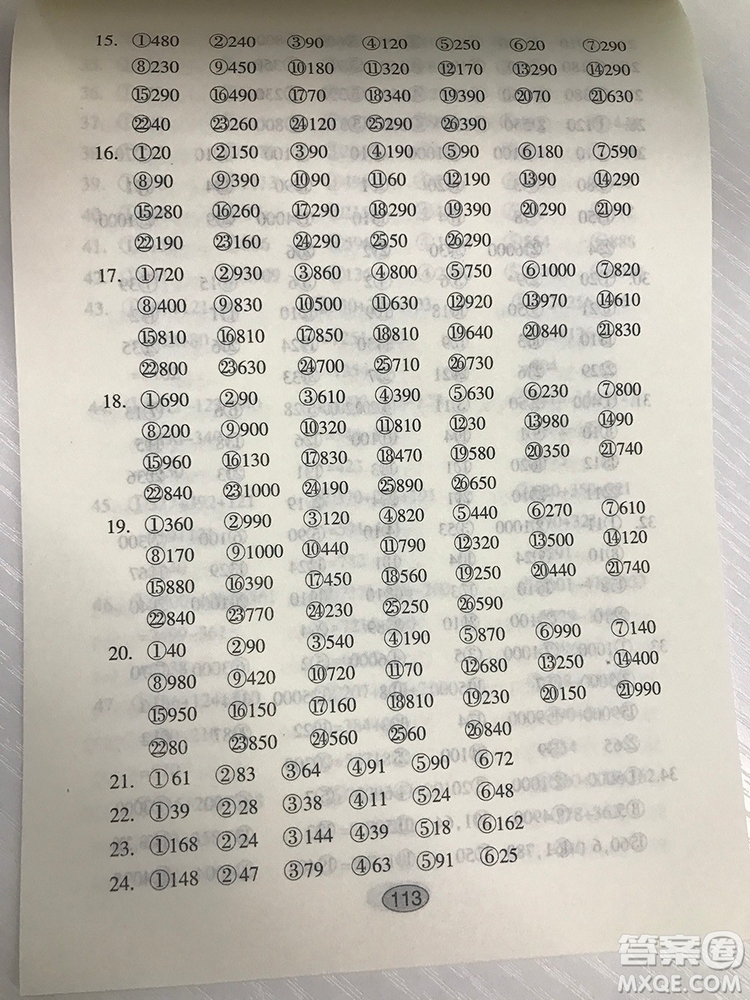 15. ①480 ②240 ③90 ④120 ⑤250 ⑥20 ⑦290
⑧230 ⑨450 ⑩180 ⑪320 ⑫170 ⑬290 ⑭290
⑮290 ⑯490 ⑰70 ⑱340 ⑲390 ⑳70 ㉑630
㉒40 ㉓260 ㉔120 ㉕290 ㉖390
16. ①20 ②150 ③90 ④190 ⑤90 ⑥180 ⑦590
⑧90 ⑨390 ⑩90 ⑪60 ⑫190 ⑬90 ⑭290
⑮280 ⑯260 ⑰290 ⑱290 ⑲390 ⑳290 ㉑90
㉒190 ㉓160 ㉔290 ㉕50 ㉖290
17. ①720 ②930 ③860 ④800 ⑤750 ⑥1000 ⑦820
⑧400 ⑨830 ⑩500 ⑪630 ⑫920 ⑬970 ⑭610
⑮810 ⑯810 ⑰850 ⑱810 ⑲640 ⑳840 ㉑830
㉒800 ㉓630 ㉔700 ㉕710 ㉖730
18. ①690 ②90 ③610 ④390 ⑤630 ⑥230 ⑦800
⑧200 ⑨900 ⑩320 ⑪810 ⑫30 ⑬980 ⑭90
⑮960 ⑯130 ⑰830 ⑱470 ⑲580 ⑳350 ㉑740
㉒840 ㉓1000 ㉔190 ㉕890 ㉖650
19. ①360 ②990 ③120 ④820 ⑤440 ⑥270 ⑦610
⑧170 ⑨1000 ⑩440 ⑪790 ⑫320 ⑬500 ⑭120
⑮880 ⑯390 ⑰450 ⑱560 ⑲250 ⑳440 ㉑740
㉒840 ㉓770 ㉔230 ㉕250 ㉖590
20. ①40 ②90 ③540 ④190 ⑤870 ⑥990 ⑦140
⑧980 ⑨420 ⑩720 ⑪70 ⑫680 ⑬250 ⑭400
⑮950 ⑯150 ⑰160 ⑱810 ⑲230 ⑳150 ㉑990
㉒80 ㉓850 ㉔560 ㉕60 ㉖840
21. ①61 ②83 ③64 ④91 ⑤90 ⑥72
22. ①39 ②28 ③38 ④11 ⑤24 ⑥48
23. ①168 ②24 ③144 ④39 ⑤18 ⑥162
24. ①148 ②47 ③79 ④63 ⑤91 ⑥25
113
答案圈
MXQE.COM